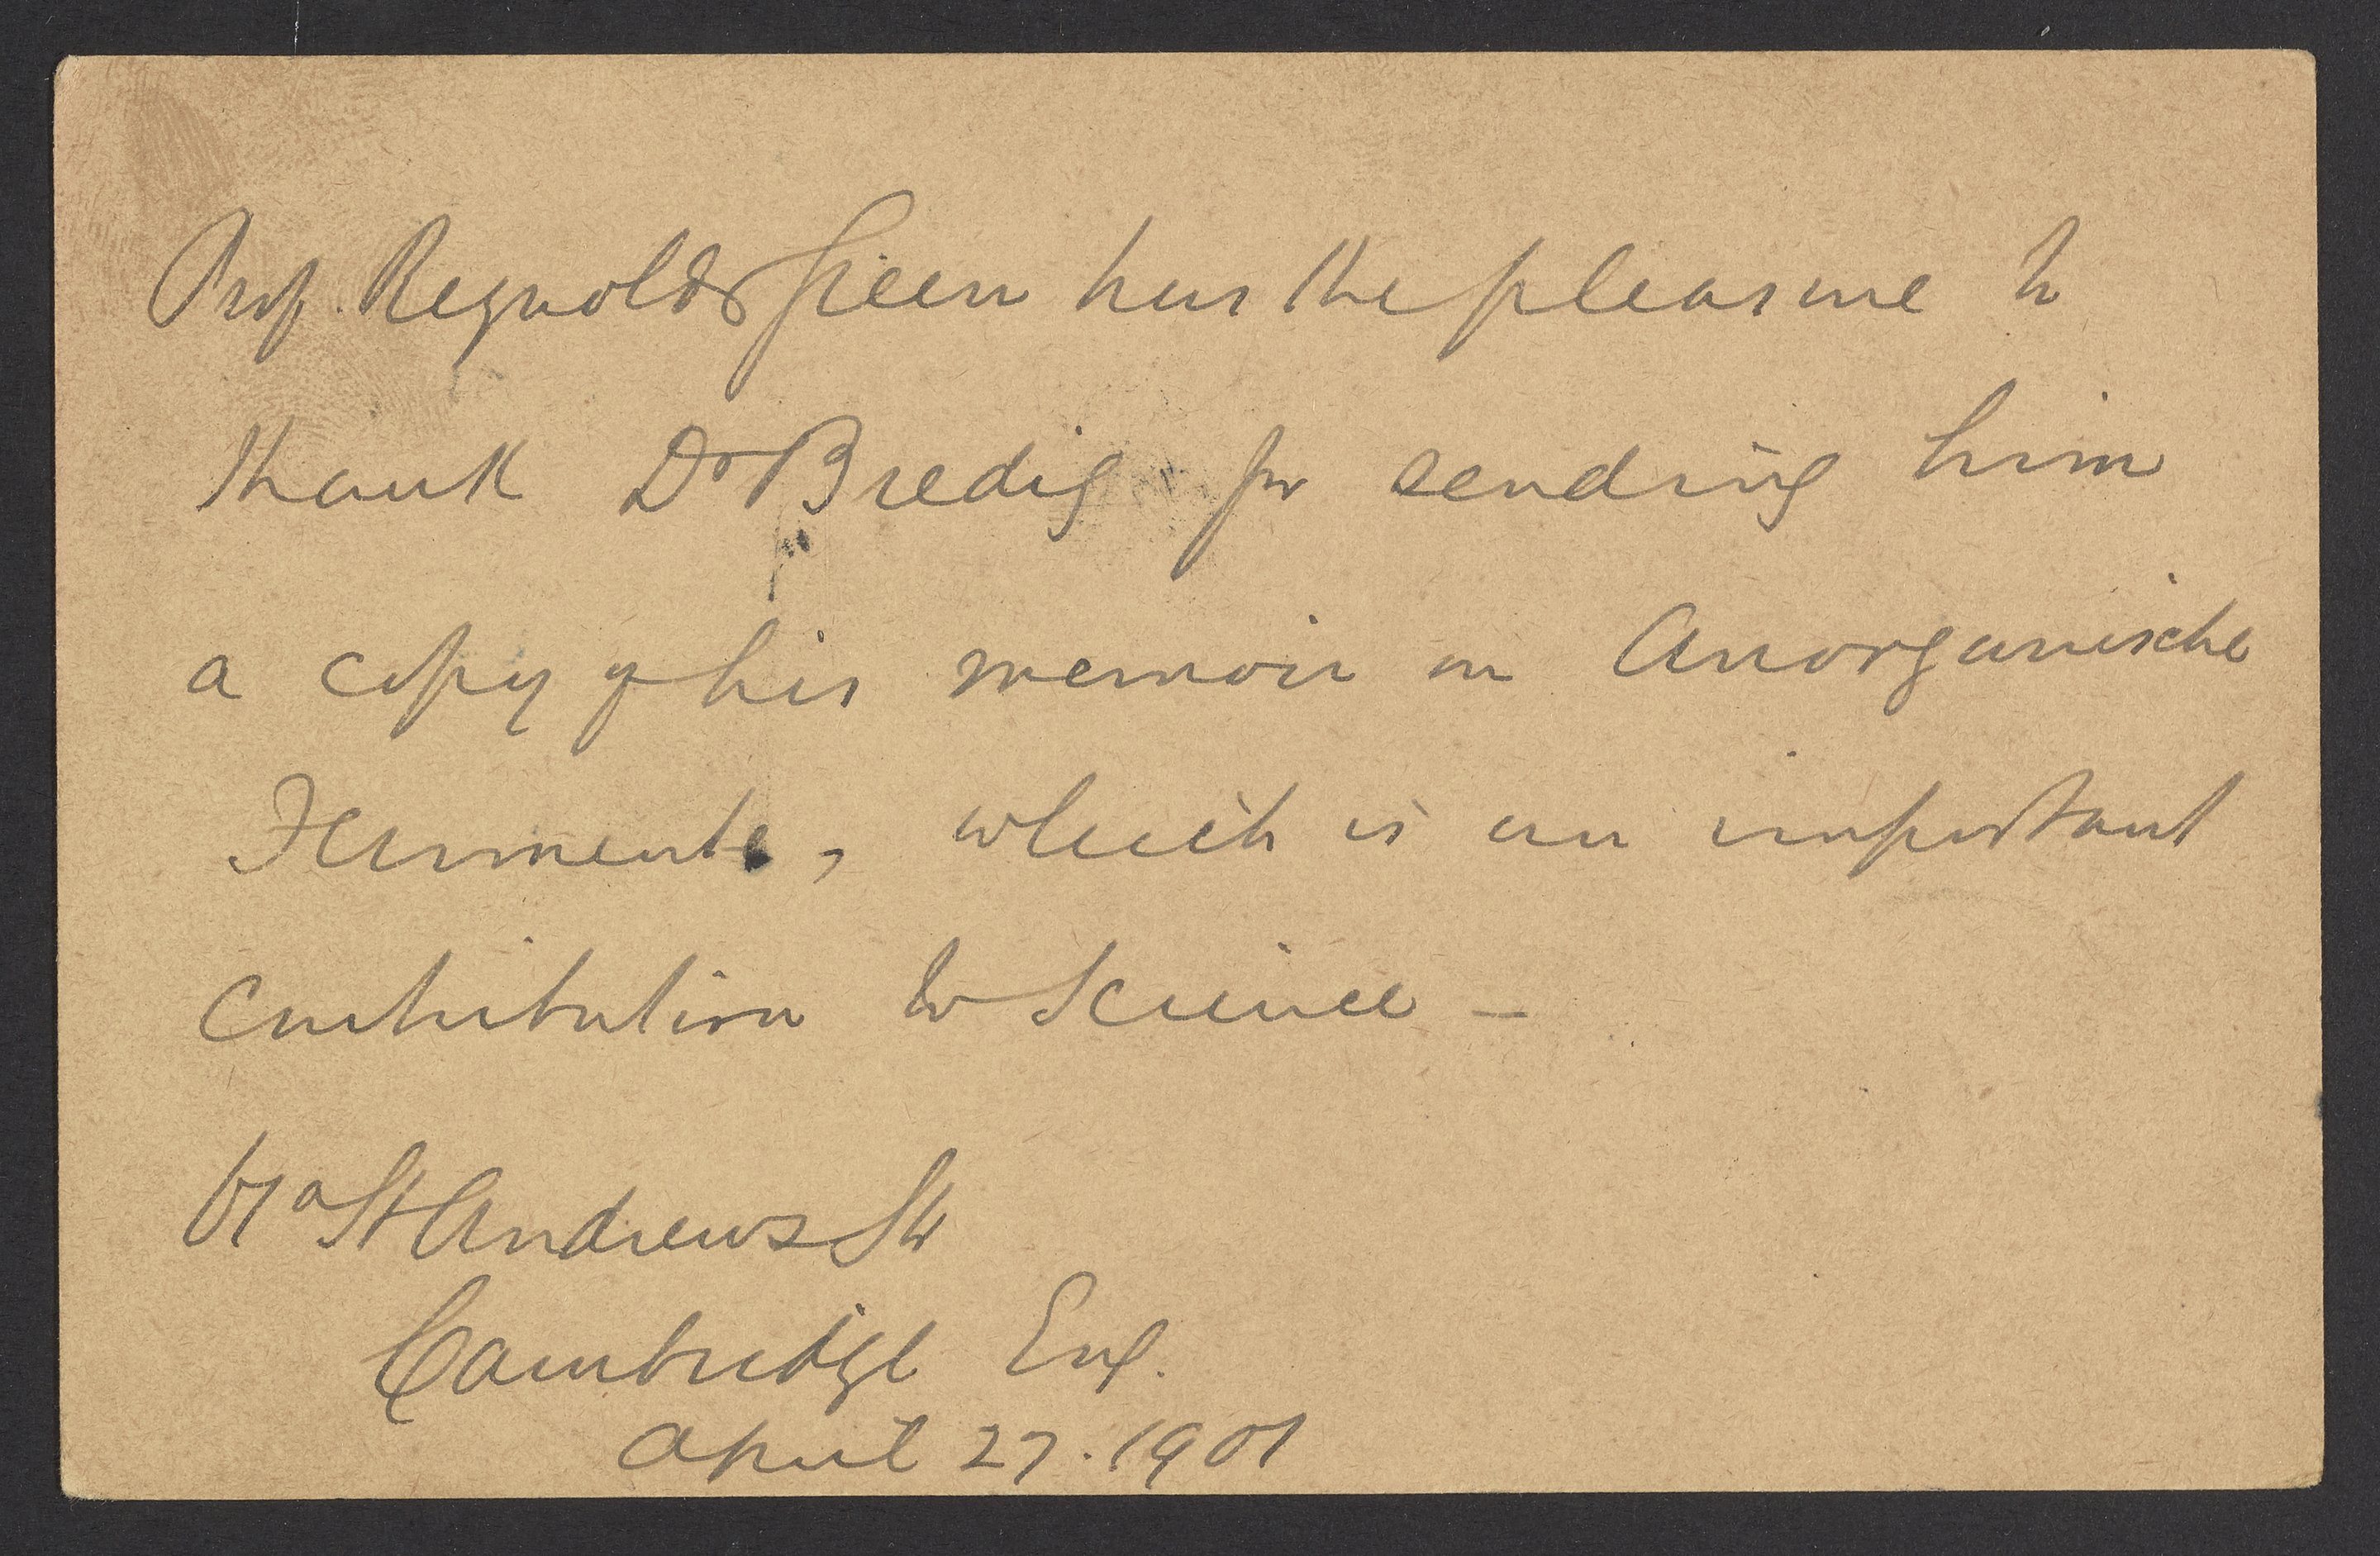 Prof. Reynolds Green has the pleasure to
thank Dr Bredig for sending him
a copy of his memoir on Anorganische
Fermente, which is an important
Contribution to Science –
61a St Andrews St
Cambridge Eng.
April 27. 1901